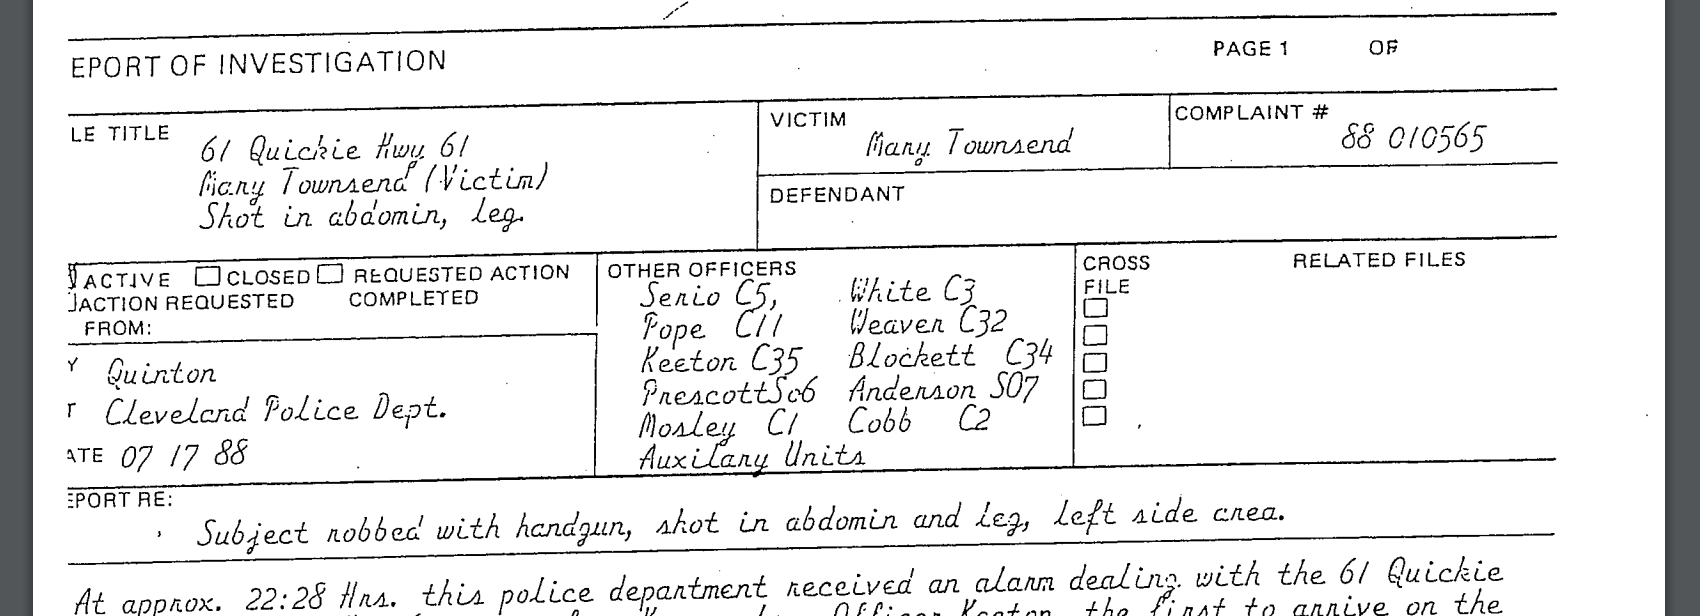 EPORT OF INVESTIGATION
PAGE 1 OF
LE TITLE
61 Quickie Hwy 61
Mary Townsend (Victim)
Shot in abdomin, leg.
VICTIM
Mary Townsend
COMPLAINT #
88 010565
DEFENDANT
ACTIVE CLOSED REQUESTED ACTION
ACTION REQUESTED COMPLETED
FROM:
Y Quinton
T Cleveland Police Dept.
ATE 07 17 88
OTHER OFFICERS
Serio C5, White C3
Pope C11 Weaver C32
Keeton C35 Blockett C34
Prescott So6 Anderson S07
Mosley C1 Cobb C2
Auxilary Units
CROSS
FILE
RELATED FILES
EPORT RE:
Subject robbed with handgun, shot in abdomin and leg, left side area.
At approx. 22:28 Hrs. this police department received an alarm dealing with the 61 Quickie
Officer Keeton, the first to arrive on the